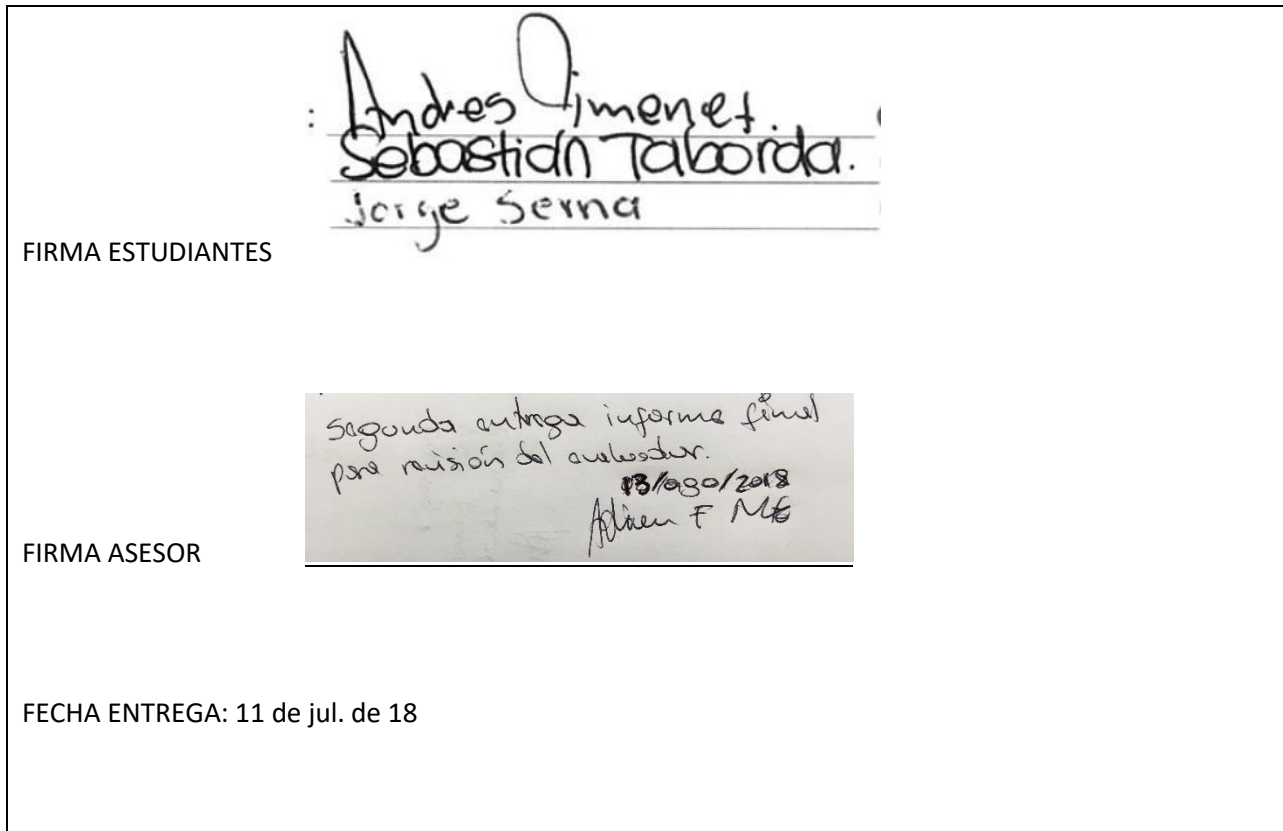 : Andres Jimenez.
Sebastián Taborda.
Jorge Serna
FIRMA ESTUDIANTES
Segunda entrega informe final
para revisión del evaluador.
13/ago/2018
F
FIRMA ASESOR
FECHA ENTREGA: 11 de jul. de 18